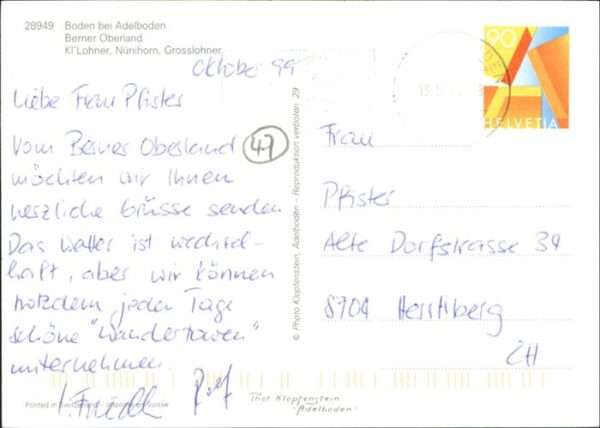 28949 Boden bei Adelboden
Berner Oberland
Kl'Lohner, Nünihorn, Grosslohner
90
HELVETIA
Oktober 99
Liebe Frau Pfister
Vom Berner Oberland
47
möchten wir Ihnen
herzliche Grüsse senden.
Das Wetter ist wechsel-
haft, aber wir können
trotzdem jeden Tage
schöne "Wandertouren"
unternehmen.
© Photo Klopfenstein, Adelboden – Reproduktion verboten 29
Frau
Pfister
Alte Dorfstrasse 39
8704 Herrliberg
CH
Printed in Switzerland
Thos Klopfenstein
"Adelboden"